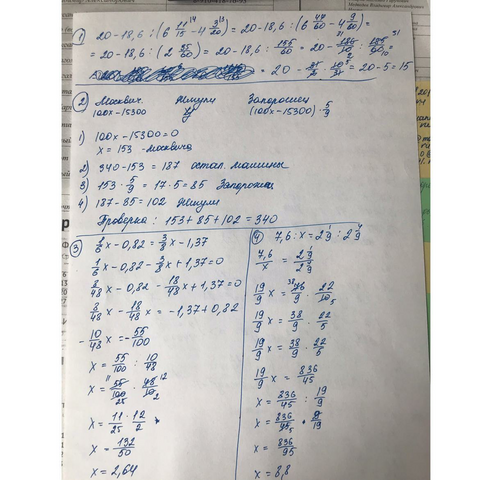 1) 20-18,6 : (6 11/15 - 4 9/20) = 20-18,6 : (6 44/60 - 4 9/20) =
= 20-18,6 : (2 35/60) = 20-18,6 : 155/60 = 20 -
= 20 - = 20-5 = 15
2) Москвич. Жигули Запорожец
100x-15300 y (100x-15300) · 5/9
1) 100x-15300=0
x = 153 - москвича
2) 340-153 = 187 остал. машины
3) 153 · 5/9 = 17·5=85 Запорожец
4) 187-85=102 Жигули
Проверка: 153+85+102=340
3) 1/6 x - 0,82 = 3/8 x - 1,37
1/6 x - 0,82 - 3/8 x + 1,37 = 0
8/48 x - 0,82 - 18/48 x + 1,37 = 0
8/48 x - 18/48 x = -1,37 + 0,82
-10/48 x = -55/100
x = 55/100 : 10/48
x = 55/100 · 48/10
x = 11/25 · 12/2
x = 132/50
x = 2,64
4) 7,6 : x =
7,6/x =
19/9 x = 76/ · 22/
19/9 x = 38/9 · 22/5
19/9 x = 38/9 · 22/5
19/9 x = 836/45
x = 836/45 : 19/9
x = 836/45 · 9/19
x = 836/95
x = 8,8